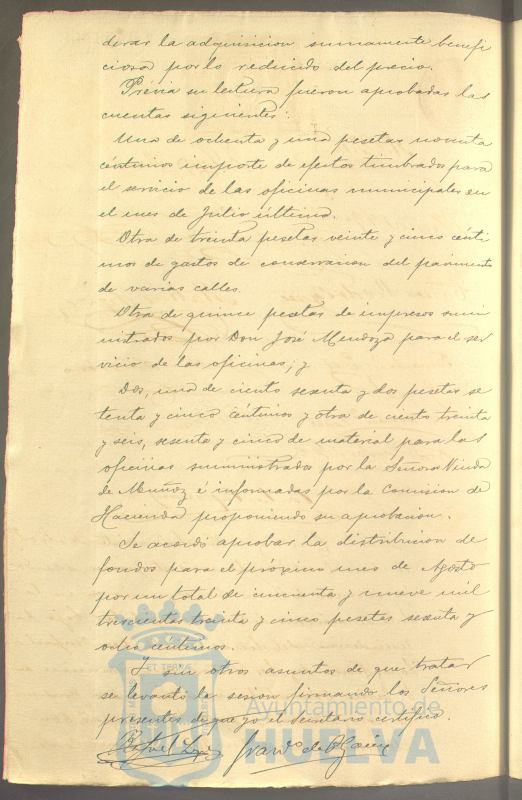 derar la adquisicion sumamente benefi
ciosa por lo reducido del precio.
Prévia su lectura fueron aprobadas las
cuentas siguientes:
Una de ochenta y una pesetas noventa
céntimos importe de efectos timbrados para
el servicio de las oficinas municipales en
el mes de Julio último.
Otra de treinta pesetas veinte y cinco cénti
mos de gastos de conservacion del pavimento
de varias calles.
Otra de quince pesetas de impresos sumi
nistrados por Don José Mendoza para el ser
vicio de las oficinas; y
Dos, una de ciento sesenta y dos pesetas se
tenta y cinco céntimos y otra de ciento treinta
y seis, sesenta y cinco de material para las
oficinas suministrados por la Señora Viuda
de Muñoz é informadas por la Comision de
Hacienda proponiendo su aprobacion.
Se acordó aprobar la distribucion de
fondos para el próximo mes de Agosto
por un total de cincuenta y nueve mil
trescientas treinta y cinco pesetas sesenta y
ocho centimos.
Y sin otros asuntos de que tratar
se levantó la sesion firmando los Señores
presentes de que yo el Secretario certifico.
Ayuntamiento de
HUELVA